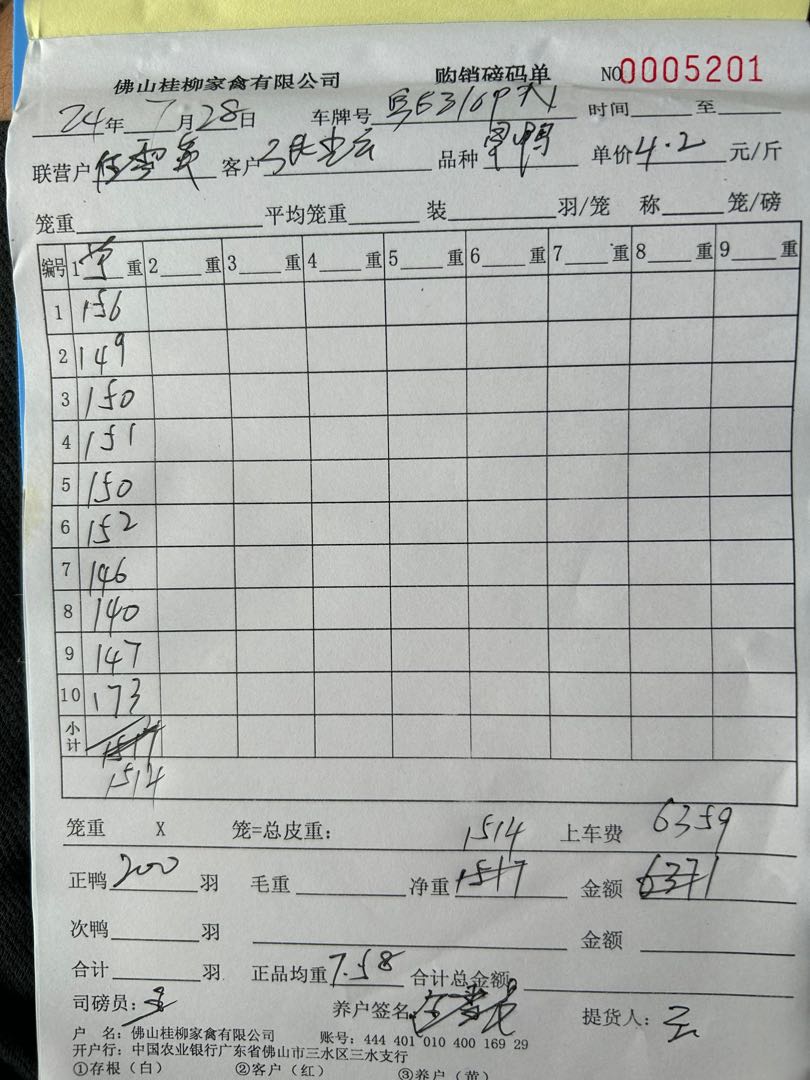 佛山桂柳家禽有限公司 购销磅码单 NO0005201
24年7月28日 车牌号 时间 至
联营户 客户 品种 单价4.2元/斤
笼重 平均笼重 装 羽/笼 称 笼/磅
编号 1 重 2 重 3 重 4 重 5 重 6 重 7 重 8 重 9 重
1 156
2 149
3 150
4 151
5 150
6 152
7 146
8 140
9 147
10 173
小计 1517
1514
笼重 X 笼=总皮重: 1514 上车费 6359
正鸭200羽 毛重 净重1517 金额6371
次鸭 羽 金额
合计 羽 正品均重7.58 合计总金额
司磅员: 养户签名 提货人:云
户 名:佛山桂柳家禽有限公司 账号:444 401 010 400 169 29
开户行:中国农业银行广东省佛山市三水区三水支行
①存根(白) ②客户(红) ③养户(黄)